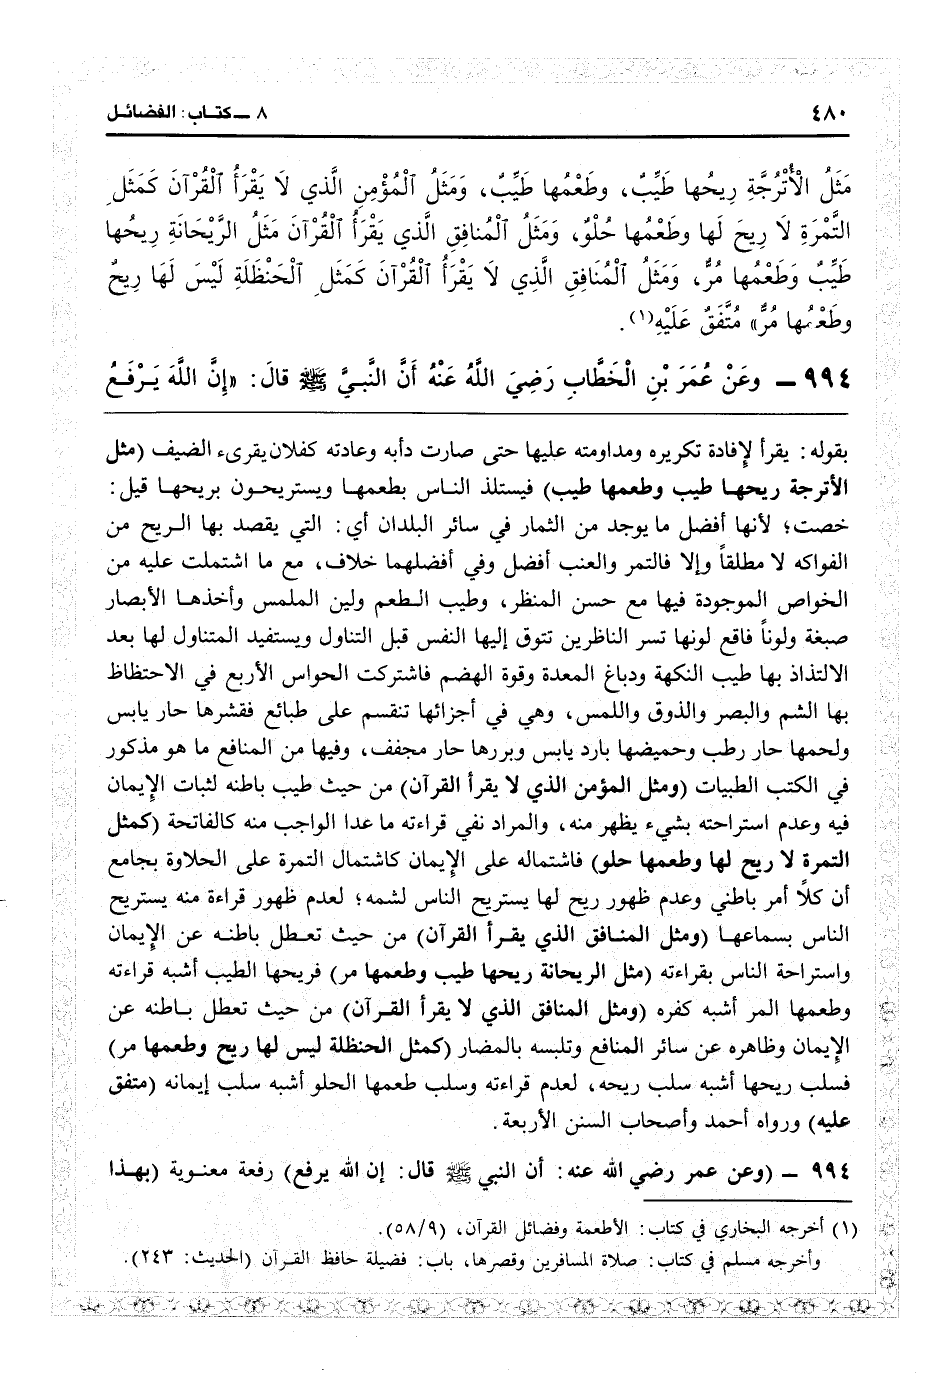 ٤٨٠
٨ ــ كتاب: الفضائل
مَثَلُ الْأُتْرُجَّةِ رِيحُها طَيِّبٌ، وطَعْمُها طَيِّبٌ، وَمَثَلُ ٱلْمُؤْمِنِ الَّذي لَا يَقْرَأُ ٱلْقُرْآنَ كَمَثَلِ
التَّمْرَةِ لَا رِيحَ لَها وطَعْمُها حُلْوٌ، وَمَثَلُ ٱلْمُنافِقِ الَّذي يَقْرَأُ ٱلْقُرْآنَ مَثَلُ الرَّيْحَانَةِ رِيحُها
طَيِّبٌ وَطَعْمُها مُرٌّ، وَمَثَلُ ٱلْمُنَافِقِ الَّذِي لَا يَقْرَأُ ٱلْقُرْآنَ كَمَثَلِ ٱلْحَنْظَلَةِ لَيْسَ لَهَا رِيحٌ
وطَعْمُها مُرٌّ» مُتَّفَقٌ عَلَيْهِ(١).
٩٩٤ ــ وعَنْ عُمَرَ بْنِ الْخَطَّابِ رَضِيَ اللَّهُ عَنْهُ أَنَّ النَّبيَّ ﷺ قالَ: «إنَّ اللَّهَ يَرْفَعُ
بقوله: يقرأ لإفادة تكريره ومداومته عليها حتى صارت دأبه وعادته كفلان يقرىء الضيف (مثل
الأترجة ريحها طيب وطعمها طيب) فيستلذ الناس بطعمها ويستريحون بريحها قيل:
خصت؛ لأنها أفضل ما يوجد من الثمار في سائر البلدان أي: التي يقصد بها الريح من
الفواكه لا مطلقاً وإلا فالتمر والعنب أفضل وفي أفضلهما خلاف، مع ما اشتملت عليه من
الخواص الموجودة فيها مع حسن المنظر، وطيب الطعم ولين الملمس وأخذها الأبصار
صبغة ولوناً فاقع لونها تسر الناظرين تتوق إليها النفس قبل التناول ويستفيد المتناول لها بعد
الالتذاذ بها طيب النكهة ودباغ المعدة وقوة الهضم فاشتركت الحواس الأربع في الاحتظاظ
بها الشم والبصر والذوق واللمس، وهي في أجزائها تنقسم على طبائع فقشرها حار يابس
ولحمها حار رطب وحميضها بارد يابس وبررها حار مجفف، وفيها من المنافع ما هو مذكور
في الكتب الطبيات (ومثل المؤمن الذي لا يقرأ القرآن) من حيث طيب باطنه لثبات الإيمان
فيه وعدم استراحته بشيء يظهر منه، والمراد نفي قراءته ما عدا الواجب منه كالفاتحة (كمثل
التمرة لا ريح لها وطعمها حلو) فاشتماله على الإيمان كاشتمال التمرة على الحلاوة بجامع
أن كلاً أمر باطني وعدم ظهور ريح لها يستريح الناس لشمه؛ لعدم ظهور قراءة منه يستريح
الناس بسماعها (ومثل المنافق الذي يقرأ القرآن) من حيث تعطل باطنه عن الإيمان
واستراحة الناس بقراءته (مثل الريحانة ريحها طيب وطعمها مر) فريحها الطيب أشبه قراءته
وطعمها المر أشبه كفره (ومثل المنافق الذي لا يقرأ القرآن) من حيث تعطل باطنه عن
الإيمان وظاهره عن سائر المنافع وتلبسه بالمضار (كمثل الحنظلة ليس لها ريح وطعمها مر)
فسلب ريحها أشبه سلب ريحه، لعدم قراءته وسلب طعمها الحلو أشبه سلب إيمانه (متفق
عليه) ورواه أحمد وأصحاب السنن الأربعة.
٩٩٤ ــ (وعن عمر رضي الله عنه: أن النبي ﷺ قال: إن الله يرفع) رفعة معنوية (بهذا
(١) أخرجه البخاري في كتاب: الأطعمة وفضائل القرآن، (٥٨/٩).
وأخرجه مسلم في كتاب: صلاة المسافرين وقصرها، باب: فضيلة حافظ القرآن (الحديث: ٢٤٣).